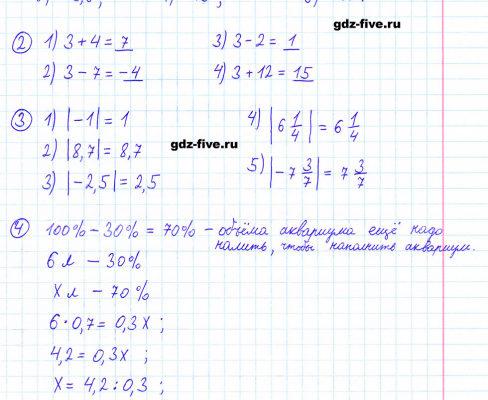 gdz-five.ru
2 1) 3 + 4 = 7 3) 3 - 2 = 1
2) 3 - 7 = -4 4) 3 + 12 = 15
3 1) |-1| = 1 4) |6 1/4| = 6 1/4
gdz-five.ru
2) |8,7| = 8,7
3) |-2,5| = 2,5 5) |-7 3/7| = 7 3/7
4 100% - 30% = 70% - объёма аквариума ещё надо
налить, чтобы наполнить аквариум.
6 л - 30%
x л - 70%
6 · 0,7 = 0,3x ;
4,2 = 0,3x ;
x = 4,2 : 0,3 ;